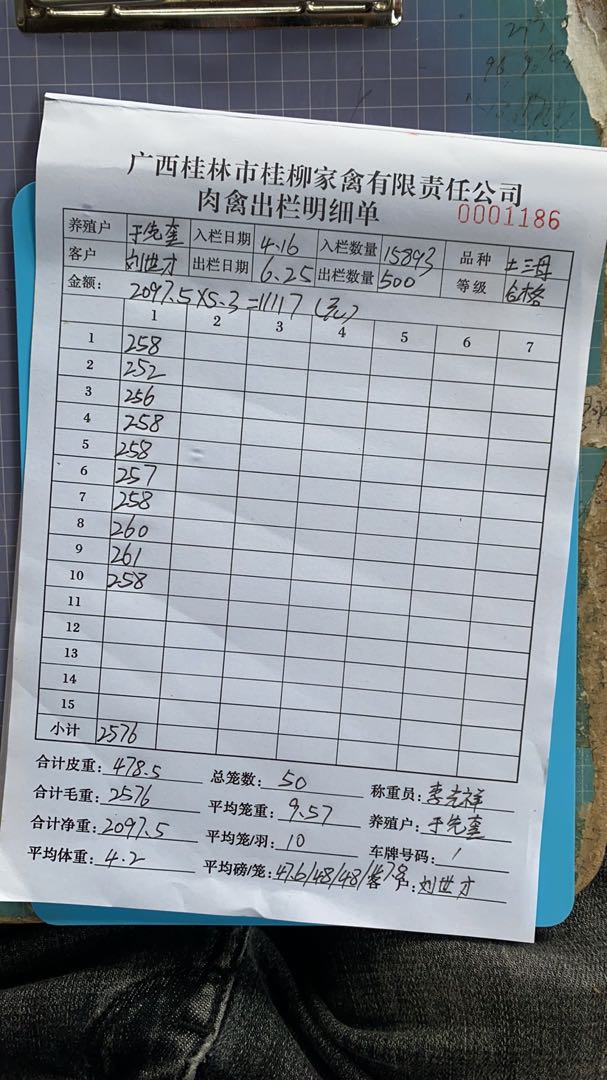 广西桂林市桂柳家禽有限责任公司
肉禽出栏明细单 0001186
养殖户 于先奎 入栏日期 4.16 入栏数量 15893 品种 土三母
客户 刘世才 出栏日期 6.25 出栏数量 500 等级 合格
金额: 2097.5×5.3=11117(元)
1 2 3 4 5 6 7
1 258
2 252
3 256
4 258
5 258
6 257
7 258
8 260
9 261
10 258
11
12
13
14
15
小计 2576
合计皮重: 478.5 总笼数: 50 称重员: 李吉祥
合计毛重: 2576 平均笼重: 9.57 养殖户: 于先奎
合计净重: 2097.5 平均笼/羽: 10 车牌号码: /
平均体重: 4.2 平均磅/笼: 47.6/48/48/47.8 客户: 刘世才